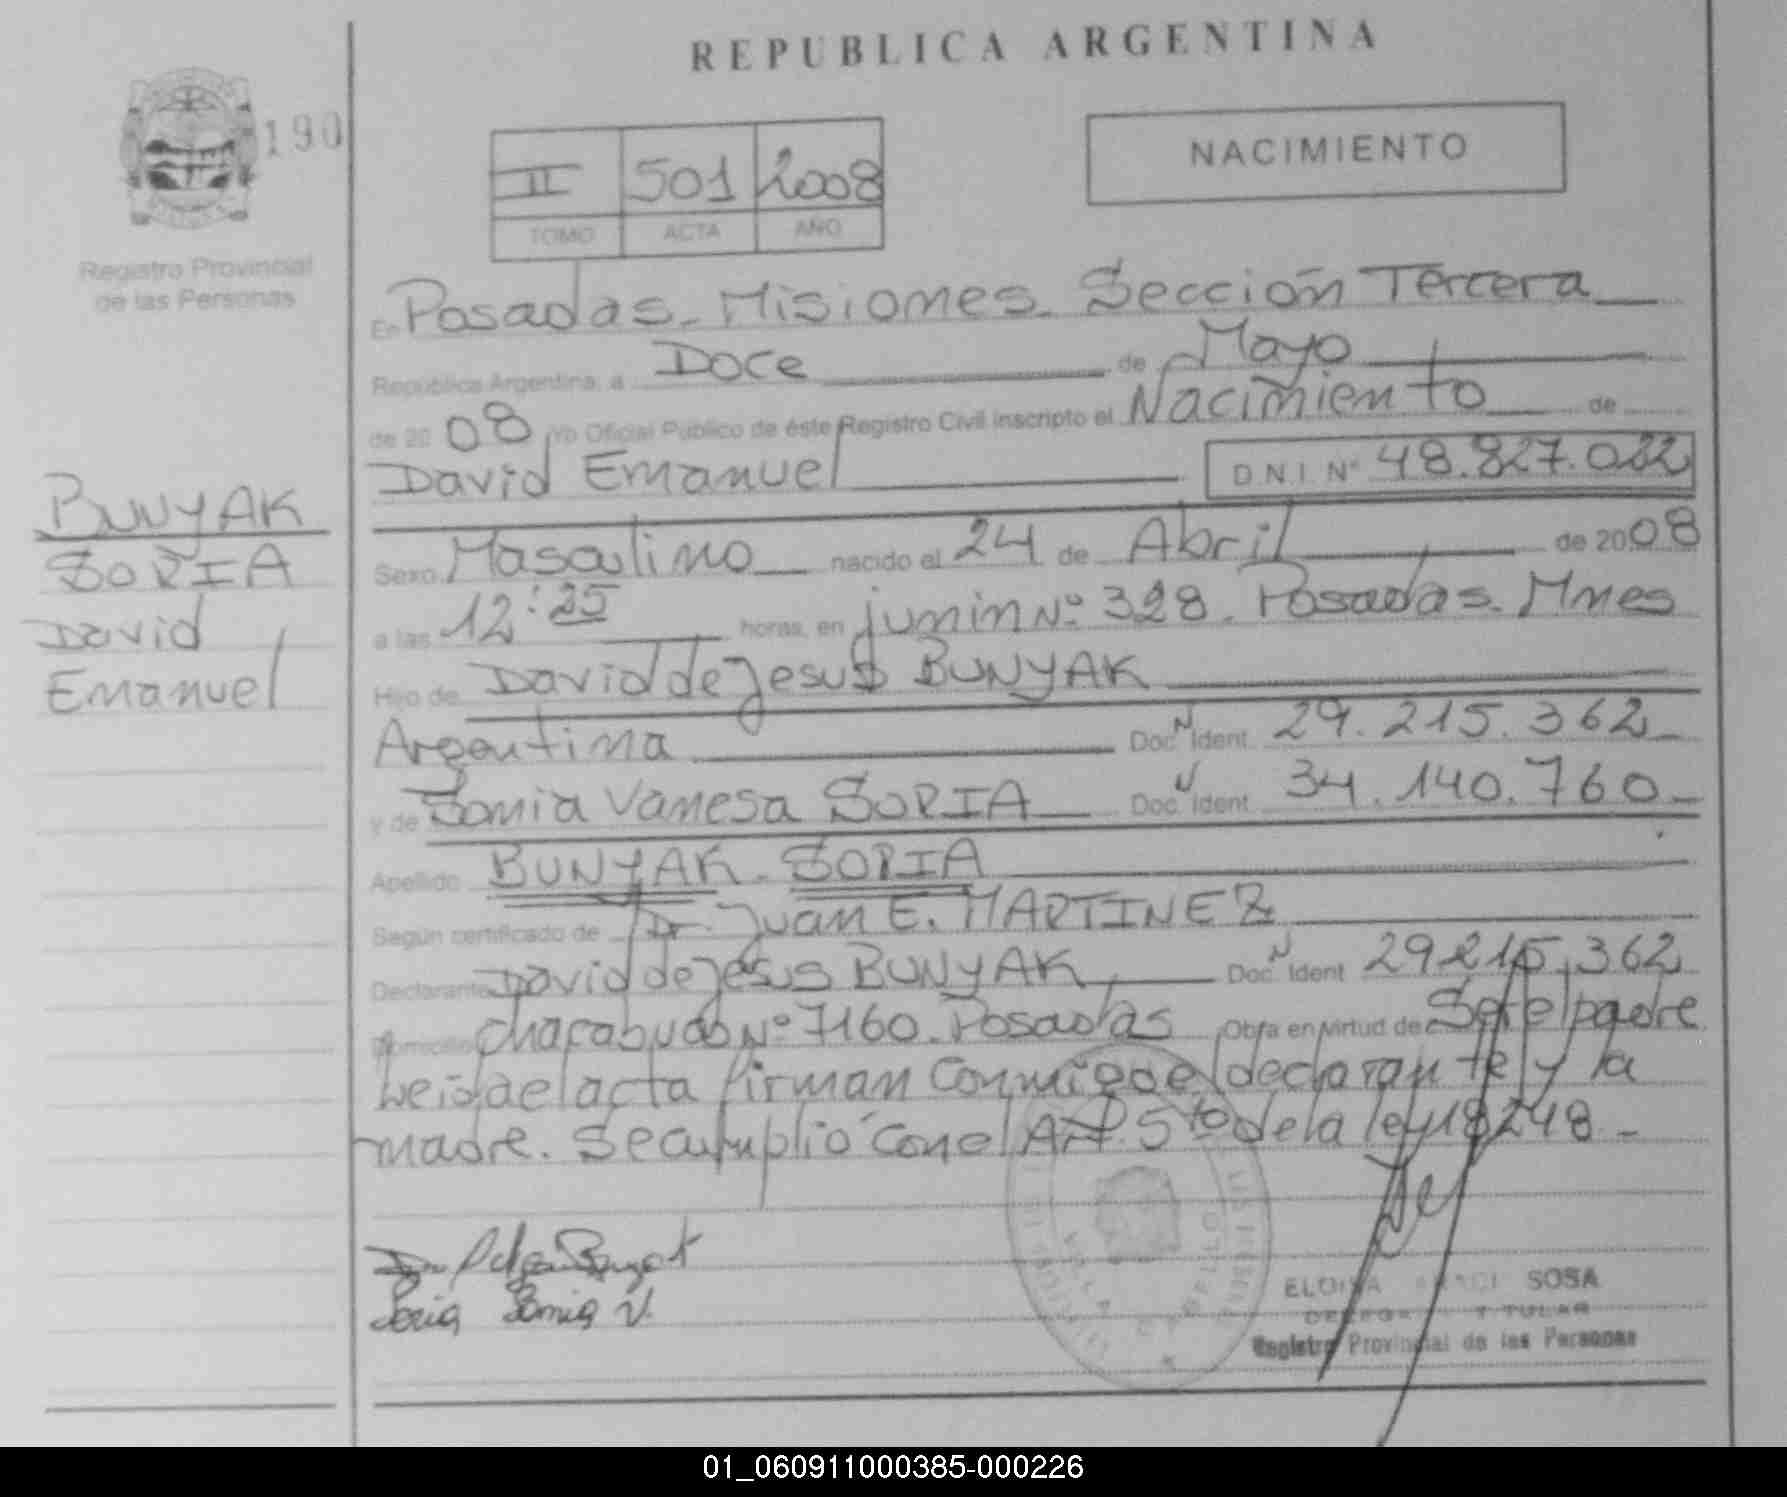 REPUBLICA ARGENTINA
190
NACIMIENTO
II 501 2008
TOMO ACTA AÑO
Registro Provincial
de las Personas
En Posadas. Misiones. Sección Tercera
República Argentina, a Doce de Mayo
de 20 08 Yo Oficial Público de éste Registro Civil inscripto el Nacimiento de
David Emanuel D.N.I. Nº 48.827.022
BUNYAK
SORIA
David
Emanuel
Sexo Masculino nacido el 24 de Abril de 2008
a las 12:25 horas, en junin Nº 328. Posadas. Mnes
Hijo de David de Jesus BUNYAK
Argentina Doc. N Ident. 29.215.362
y de Sonia Vanesa SORIA Doc. N Ident. 34.140.760
Apellido BUNYAK - SORIA
Según certificado de Dr. Juan E. MARTINEZ
Declarante David de Jesus BUNYAK Doc. N Ident 29215.362
Domicilio chacabuco Nº 7160. Posadas Obra en virtud de Ser el padre
Leida el acta firman Conmigo el declarante y la
madre. Se cumplió con el Art. 5to de la ley 18248 -
Soria Sonia V.
ELOISA SOSA
TITULAR
Registro Provincial de las Personas
01_060911000385-000226